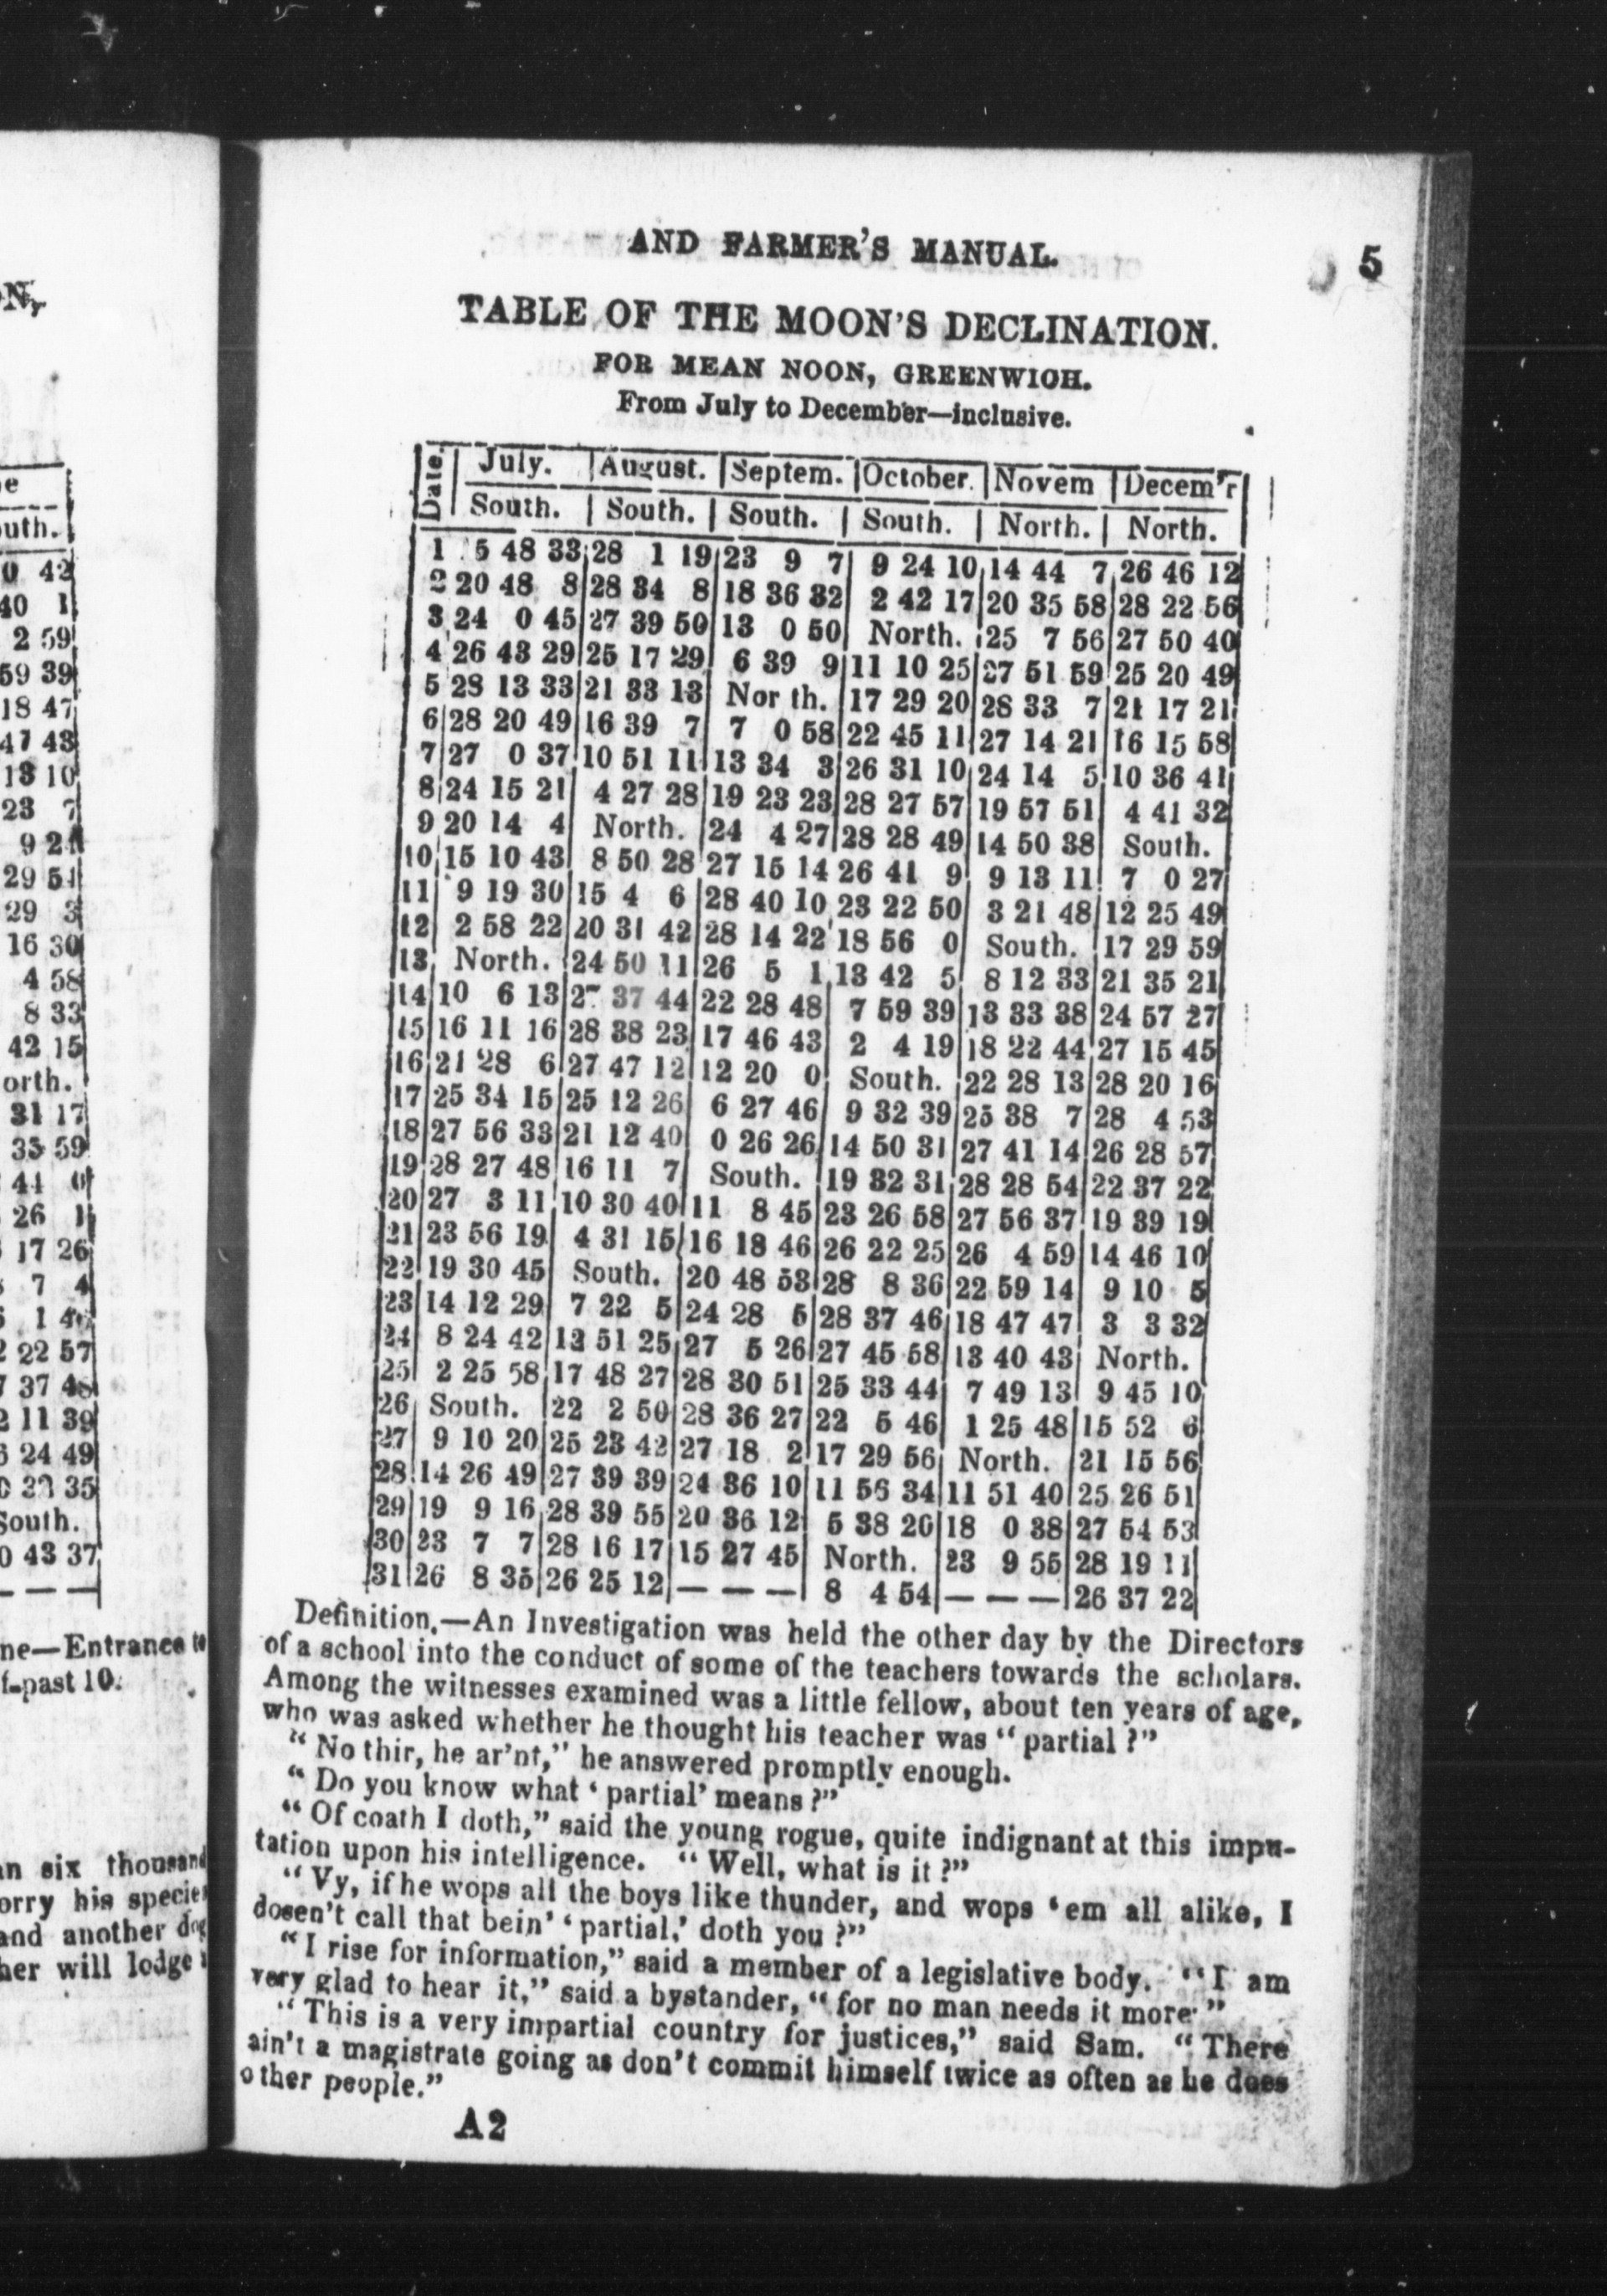 AND FARMER'S MANUAL. 5
TABLE OF THE MOON'S DECLINATION.
FOR MEAN NOON, GREENWICH.
From July to December—inclusive.
Date. | July. | August. | Septem. | October. | Novem | Decem'r
South. | South. | South. | South. | North. | North.
1 | 5 48 33 | 28 1 19 | 23 9 7 | 9 24 10 | 14 44 7 | 26 46 12
2 | 20 48 8 | 28 34 8 | 18 36 32 | 2 42 17 | 20 35 58 | 28 22 56
3 | 24 0 45 | 27 39 50 | 13 0 50 | North. | 25 7 56 | 27 50 40
4 | 26 43 29 | 25 17 29 | 6 39 9 | 11 10 25 | 27 51 59 | 25 20 49
5 | 28 13 33 | 21 33 13 | Nor th. | 17 29 20 | 28 33 7 | 21 17 21
6 | 28 20 49 | 16 39 7 | 7 0 58 | 22 45 11 | 27 14 21 | 16 15 58
7 | 27 0 37 | 10 51 11 | 13 34 3 | 26 31 10 | 24 14 5 | 10 36 41
8 | 24 15 21 | 4 27 28 | 19 23 23 | 28 27 57 | 19 57 51 | 4 41 32
9 | 20 14 4 | North. | 24 4 27 | 28 28 49 | 14 50 38 | South.
10 | 15 10 43 | 8 50 28 | 27 15 14 | 26 41 9 | 9 13 11 | 7 0 27
11 | 9 19 30 | 15 4 6 | 28 40 10 | 23 22 50 | 3 21 48 | 12 25 49
12 | 2 58 22 | 20 31 42 | 28 14 22 | 18 56 0 | South. | 17 29 59
13 | North. | 24 50 11 | 26 5 1 | 13 42 5 | 8 12 33 | 21 35 21
14 | 10 6 13 | 27 37 44 | 22 28 48 | 7 59 39 | 13 33 38 | 24 57 27
15 | 16 11 16 | 28 38 23 | 17 46 43 | 2 4 19 | 18 22 44 | 27 15 45
16 | 21 28 6 | 27 47 12 | 12 20 0 | South. | 22 28 13 | 28 20 16
17 | 25 34 15 | 25 12 26 | 6 27 46 | 9 32 39 | 25 38 7 | 28 4 53
18 | 27 56 33 | 21 12 40 | 0 26 26 | 14 50 31 | 27 41 14 | 26 28 57
19 | 28 27 48 | 16 11 7 | South. | 19 32 31 | 28 28 54 | 22 37 22
20 | 27 3 11 | 10 30 40 | 11 8 45 | 23 26 58 | 27 56 37 | 19 39 19
21 | 23 56 19 | 4 31 15 | 16 18 46 | 26 22 25 | 26 4 59 | 14 46 10
22 | 19 30 45 | South. | 20 48 53 | 28 8 36 | 22 59 14 | 9 10 5
23 | 14 12 29 | 7 22 5 | 24 28 5 | 28 37 46 | 18 47 47 | 3 3 32
24 | 8 24 42 | 13 51 25 | 27 5 26 | 27 45 58 | 13 40 43 | North.
25 | 2 25 58 | 17 48 27 | 28 30 51 | 25 33 44 | 7 49 13 | 9 45 10
26 | South. | 22 2 50 | 28 36 27 | 22 5 46 | 1 25 48 | 15 52 6
27 | 9 10 20 | 25 23 42 | 27 18 2 | 17 29 56 | North. | 21 15 56
28 | 14 26 49 | 27 39 39 | 24 36 10 | 11 56 34 | 11 51 40 | 25 26 51
29 | 19 9 16 | 28 39 55 | 20 36 12 | 5 38 20 | 18 0 38 | 27 54 53
30 | 23 7 7 | 28 16 17 | 15 27 45 | North. | 23 9 55 | 28 19 11
31 | 26 8 35 | 26 25 12 | — — — | 8 4 54 | — — — | 26 37 22
Definition.—An Investigation was held the other day by the Directors
of a school into the conduct of some of the teachers towards the scholars.
Among the witnesses examined was a little fellow, about ten years of age,
who was asked whether he thought his teacher was "partial?"
"No thir, he ar'nt," he answered promptly enough.
"Do you know what 'partial' means?"
"Of coath I doth," said the young rogue, quite indignant at this impu-
tation upon his intelligence. "Well, what is it?"
"Vy, if he wops all the boys like thunder, and wops 'em all alike, I
dosen't call that bein' 'partial,' doth you?"
"I rise for information," said a member of a legislative body. "I am
very glad to hear it," said a bystander, "for no man needs it more."
"This is a very impartial country for justices," said Sam. "There
ain't a magistrate going as don't commit himself twice as often as he does
other people."
A2
ne—Entrance to
f-past 10.
an six thousand
orry his species
and another dog
her will lodge